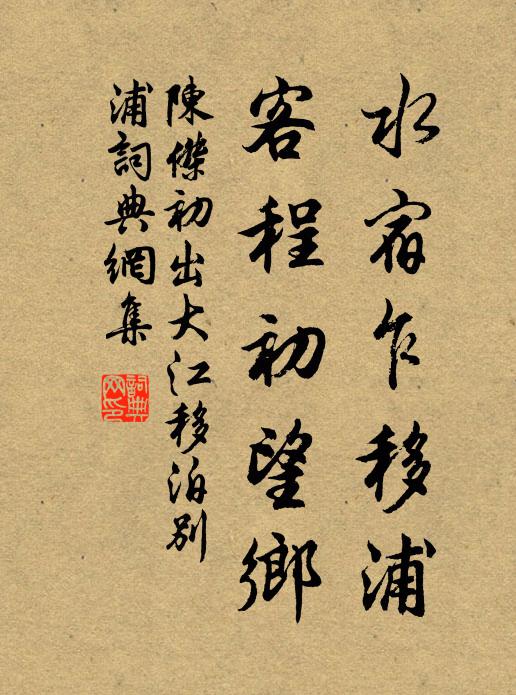 水宿乍移浦
客程初望鄉
陳傑初出大江移泊別
浦詞典網集
詞典網印